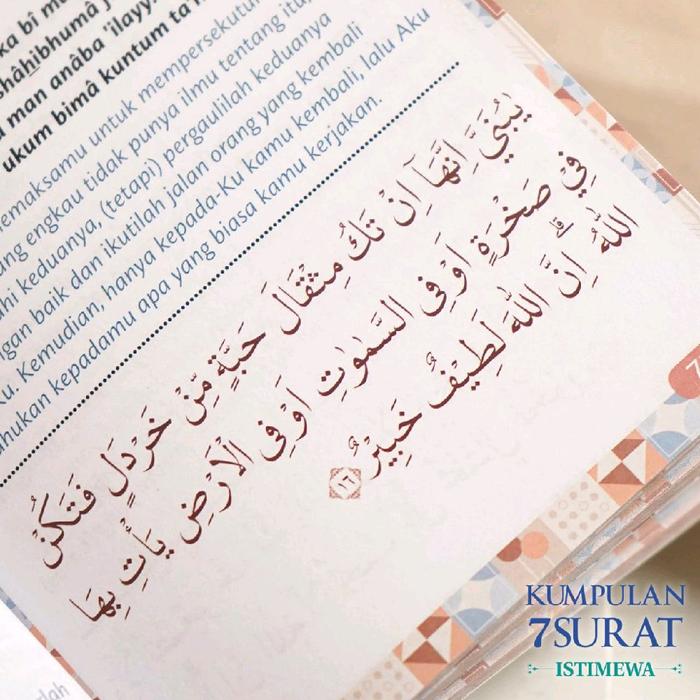 ka bi m
shâḫibhumâ
man anâba 'ilayy
ukum bimâ kuntum ta'
emaksamu untuk mempersekutu
ang engkau tidak punya ilmu tentang itu,
hi keduanya, (tetapi) pergaulilah keduanya
ngan baik dan ikutilah jalan orang yang kembali
Ku. Kemudian, hanya kepada-Ku kamu kembali, lalu Aku
ahukan kepadamu apa yang biasa kamu kerjakan.
يٰبُنَيَّ اِنَّهَآ اِنْ تَكُ مِثْقَالَ حَبَّةٍ مِّنْ خَرْدَلٍ فَتَكُنْ
فِيْ صَخْرَةٍ اَوْ فِى السَّمٰوٰتِ اَوْ فِى الْاَرْضِ يَأْتِ بِهَا
اللّٰهُ ۗاِنَّ اللّٰهَ لَطِيْفٌ خَبِيْرٌ ١٦
7
lah
KUMPULAN
7SURAT
ISTIMEWA